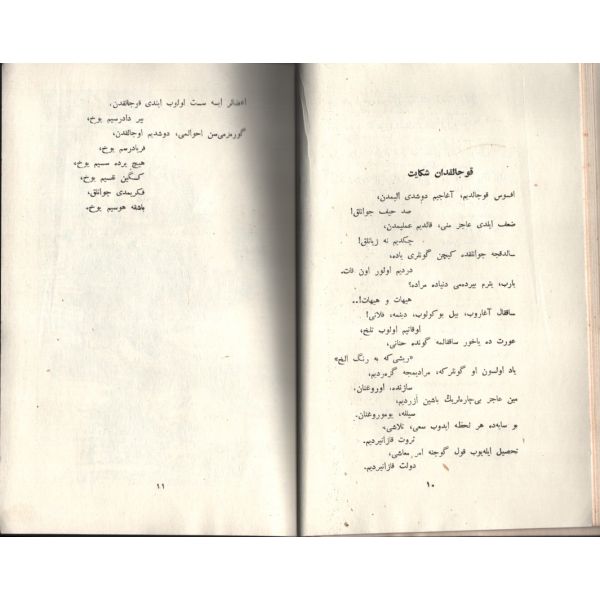 قوجالقدان شکایت
افسوس قوجالدیم، آغاجیم دوشدی الیمدن،
صد حیف جوانلق!
ضعف ایلدی عاجز منی، قالدیم عملیمدن،
چکدیم نه زیانلق!
سالدقجه جوانلقده کیچن گونلری یاده،
دردیم اولور اون قات.
یارب، یترم بیرده‌می دنیاده مراده؟
هیهات و هیهات!..
ساققال آغاروب، بیل بوکولوب، دینمه، فلانی!
اوقاتیم اولوب تلخ،
عورت ده یاخور ساققالمه گونده حنانی،
«ریشی‌که به رنگ الخ»
یاد اولسون او گونلر که، مرادیمجه گزه‌ردیم،
سازنده، اوروغنان.
مین عاجز بی‌چاره‌لریڭ باشین ازردیم،
سیلله، یوموروغنان.
بو سایه‌ده هر لحظه ایدوب سعی، تلاشی،
ثروت قازانیردیم.
تحصیل ایله‌یوب قول گوجنه امر معاشی،
دولت قازانیردیم.
۱۰
اعضالر ایسه سست اولوب ایندی قوجالقدن،
بیر دادرسیم یوخ،
گورمزمی‌سن احوالمی، دوشدیم اوجالقدن،
فریادرسم یوخ،
هیچ یرده سسیم یوخ،
کسگین نفسیم یوخ،
فکریمدی جوانلق،
باشقه هوسیم یوخ.
۱۱